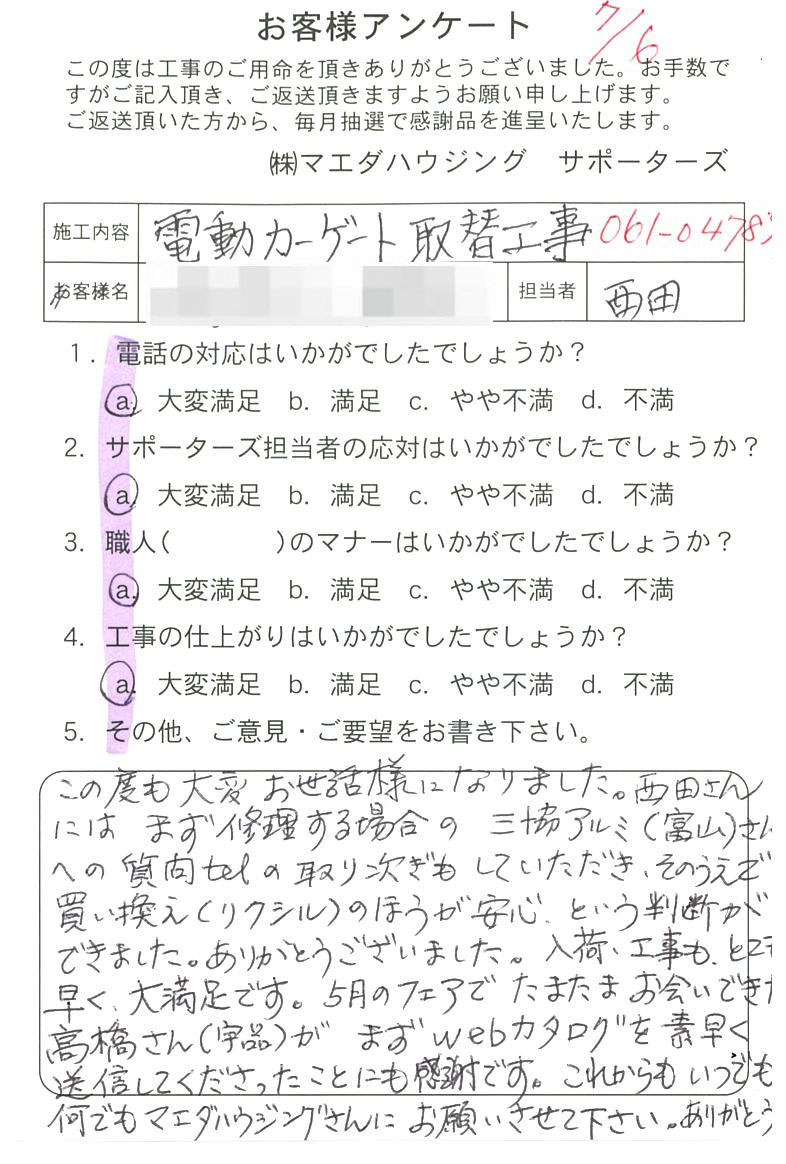 お客様アンケート
7/6
この度は工事のご用命を頂きありがとうございました。お手数で
すがご記入頂き、ご返送頂きますようお願い申し上げます。
ご返送頂いた方から、毎月抽選で感謝品を進呈いたします。
㈱マエダハウジング サポーターズ
施工内容 電動カーゲート取替工事 061-0478
お客様名 担当者 西田
1. 電話の対応はいかがでしたでしょうか？
a. 大変満足 b. 満足 c. やや不満 d. 不満
2. サポーターズ担当者の応対はいかがでしたでしょうか？
a. 大変満足 b. 満足 c. やや不満 d. 不満
3. 職人( )のマナーはいかがでしたでしょうか？
a. 大変満足 b. 満足 c. やや不満 d. 不満
4. 工事の仕上がりはいかがでしたでしょうか？
a. 大変満足 b. 満足 c. やや不満 d. 不満
5. その他、ご意見・ご要望をお書き下さい。
この度も大変お世話様になりました。西田さん
には まず修理する場合の 三協アルミ(富山)さん
への質向telの取り次ぎもしていただき、そのうえで
買い換え(リクシル)のほうが安心、という判断が
できました。ありがとうございました。入荷、工事も、とても
早く、大満足です。5月のフェアでたまたまお会いできた
高橋さん(宇品)が まずwebカタログを素早く
送信してくださったことにも感謝です。これからもいつでも
何でもマエダハウジングさんにお願いさせて下さい。ありがとう